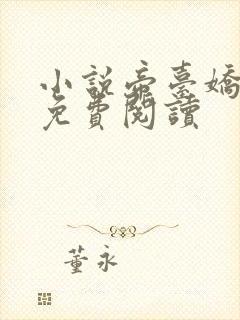 小說帝臺嬌
免費閱讀
董永